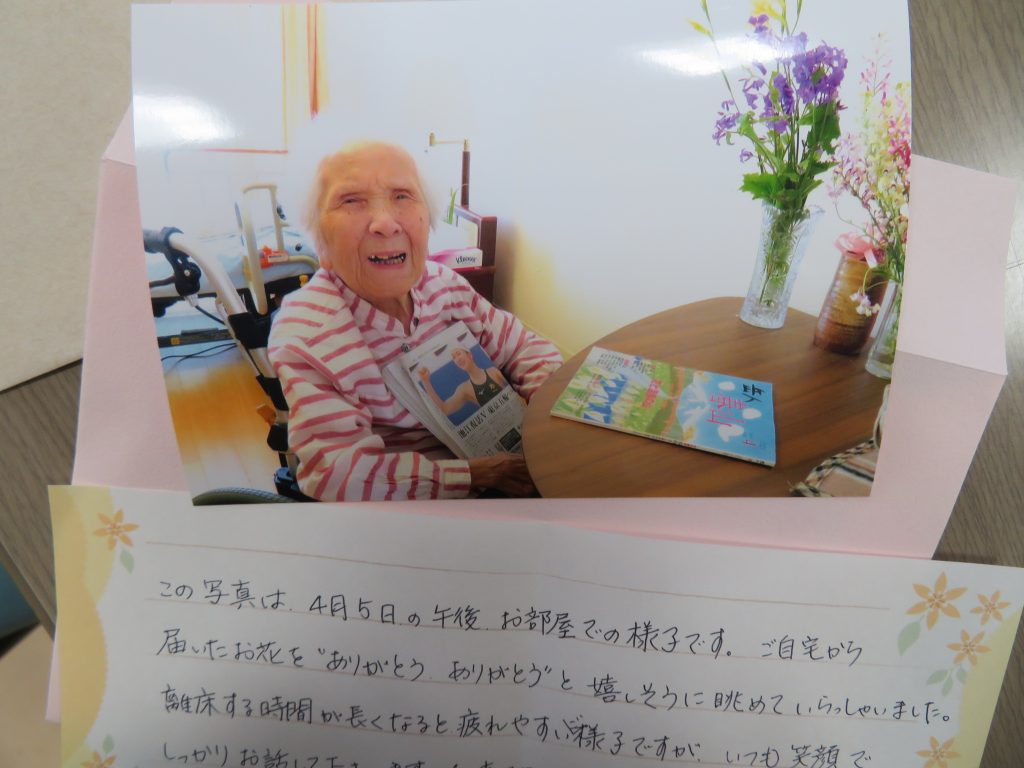 Kleenex
池江復活V 東京五輪へ
この写真は、4月5日の午後、お部屋での様子です。ご自宅から
届いたお花を"ありがとう、ありがとう"と嬉しそうに眺めていらっしゃいました。
離床する時間が長くなると疲れやすいご様子ですが、いつも笑顔で
しっかりお話して下さ